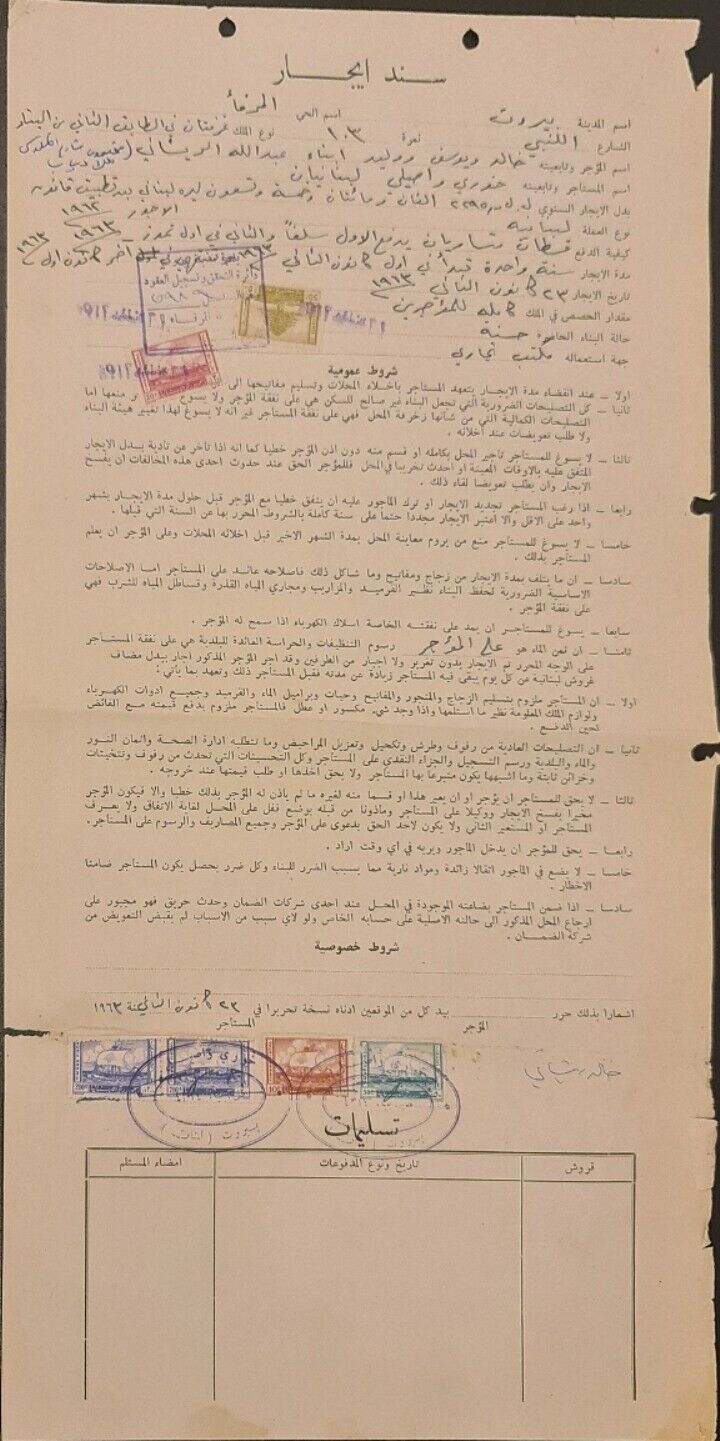 سند ايجار
اسم المدينة بيروت اسم الحي المرفأ
الشارع اللنبي نمرة ١٠٣ نوع الملك غرفتان في الطابق الثاني من البناء
اسم المؤجر وتابعيته خالد ويوسف ووليد ابناء عبدالله الريشاني
اسم المستاجر وتابعيته خوري واصيلي لبنانيان
بدل الايجار السنوي ل.ل ٢٢٩٥ الفان ومائتان وخمسة وتسعون ليره لبناني بعد تطبيق قانون
نوع العملة لبنانية الاجور ١٩٦٢
كيفية الدفع قسطان متساويان يدفع الاول سلفاً والثاني في اول تموز ١٩٦٣
مدة الايجار سنة واحدة تبدأ في اول كانون الثاني ١٩٦٣ وتنتهي في آخر كانون اول ١٩٦٣
تاريخ الايجار ٢٣ كانون الثاني ١٩٦٣
مقدار الحصص في الملك كامله للمؤجرين
حالة البناء الحاضرة حسنة
جهة استعماله مكتب تجاري
شروط عمومية
اولا ــ عند انقضاء مدة الايجار يتعهد المستاجر باخلاء المحلات وتسليم مفاتيحها الى
ثانيا ــ كل التصليحات الضرورية التي تجعل البناء غير صالح للسكن هي على نفقة المؤجر ولا يسوغ منعها اما
التصليحات الكمالية التي من شأنها زخرفة المحل فهي على نفقة المستاجر غير انه لا يسوغ لهذا تغيير هيئة البناء
ولا طلب تعويضات عند اخلائه .
ثالثا ــ لا يسوغ للمستاجر تاجير المحل بكامله او قسم منه دون اذن المؤجر خطيا كما انه اذا تاخر عن تادية بدل الايجار
المتفق عليه بالاوقات المعينة او احدث تخريبا في المحل فللمؤجر الحق عند حدوث احدى هذه المخالفات ان يفسخ
الايجار وان يطلب تعويضا لقاء ذلك .
رابعا ــ اذا رغب المستاجر تجديد الايجار او ترك الماجور عليه ان يتفق خطيا مع المؤجر قبل حلول مدة الايجار بشهر
واحد على الاقل والا اعتبر الايجار مجددا حتما على سنة كاملة بالشروط المحرر بها عن السنة التي قبلها .
خامسا ــ لا يسوغ للمستاجر منع من يروم معاينة المحل بمدة الشهر الاخير قبل اخلائه المحلات وعلى المؤجر ان يعلم
المستاجر بذلك .
سادسا ــ ان ما يتلف بمدة الايجار من زجاج ومفاتيح وما شاكل ذلك فاصلاحه عائد على المستاجر اما الاصلاحات
الاساسية الضرورية لحفظ البناء نظير القرميد والمزاريب ومجاري المياه القذرة وقساطل المياه للشرب فهي
على نفقة المؤجر .
سابعا ــ يسوغ للمستاجر ان يمد على نفقته الخاصة اسلاك الكهرباء اذا سمح له المؤجر .
ثامنا ــ ان ثمن الماء هو على المؤجر رسوم التنظيفات والحراسة العائدة للبلدية هي على نفقة المستاجر
على الوجه المحرر تم الايجار بدون تغرير ولا اجبار من الطرفين وقد اجر المؤجر المذكور اجار ببدل مضاف
غروش لبنانية عن كل يوم يبقى فيه المستاجر زيادة عن مدته فقبل المستاجر ذلك وتعهد بما يأتي :
اولا ــ ان المستاجر ملزوم بتسليم الزجاج والمنجور والمفاتيح وحبات وبراميل الماء والقرميد وجميع ادوات الكهرباء
ولوازم الملك المعلومة نظير ما استلمها واذا وجد شيء مكسور او عطل فالمستاجر ملزوم بدفع قيمته مع الفائض
لحين الدفع .
ثانيا ــ ان التصليحات العادية من رفوف وطرش وتكحيل وتعزيل المراحيض وما تتطلبه ادارة الصحة واثمان النور
والماء والبلدية ورسم التسجيل والجزاء النقدي على المستاجر وكل التحسينات التي تحدث من رفوف وتتخيتات
وخزائن ثابتة وما اشبهها يكون متبرعا بها المستاجر ولا يحق اخذها او طلب قيمتها عند خروجه .
ثالثا ــ لا يحق للمستاجر ان يؤجر او ان يعير هذا او قسما منه لغيره ما لم ياذن له المؤجر بذلك خطيا والا فيكون المؤجر
مخيرا بفسخ الايجار ووكيلا على المستاجر وماذونا من قبله بوضع قفل على المحل لغاية الاتفاق ولا يعرف
المستاجر او المستعير الثاني ولا يكون لاحد الحق بدعوى على المؤجر وجميع المصاريف والرسوم على المستاجر.
رابعا ــ يحق للمؤجر ان يدخل الماجور ويريه في اي وقت اراد .
خامسا ــ لا يضع في الماجور اثقالا زائدة ومواد نارية مما يسبب الضرر للبناء وكل ضرر يحصل يكون المستاجر ضامنا
الاخطار .
سادسا ــ اذا ضمن المستاجر بضاعته الموجودة في المحل عند احدى شركات الضمان وحدث حريق فهو مجبور على
ارجاع المحل المذكور الى حالته الاصلية على حسابه الخاص ولو لاي سبب من الاسباب لم يقبض التعويض من
شركة الضمان .
شروط خصوصية
اشعارا بذلك حرر بيد كل من الموقعين ادناه نسخة تحريرا في ٢٣ كانون الثاني سنة ١٩٦٣
المؤجر المستاجر
خالد ريشاني
بيروت (لبنان)
تسليمات
قروش تاريخ ونوع المدفوعات امضاء المستلم